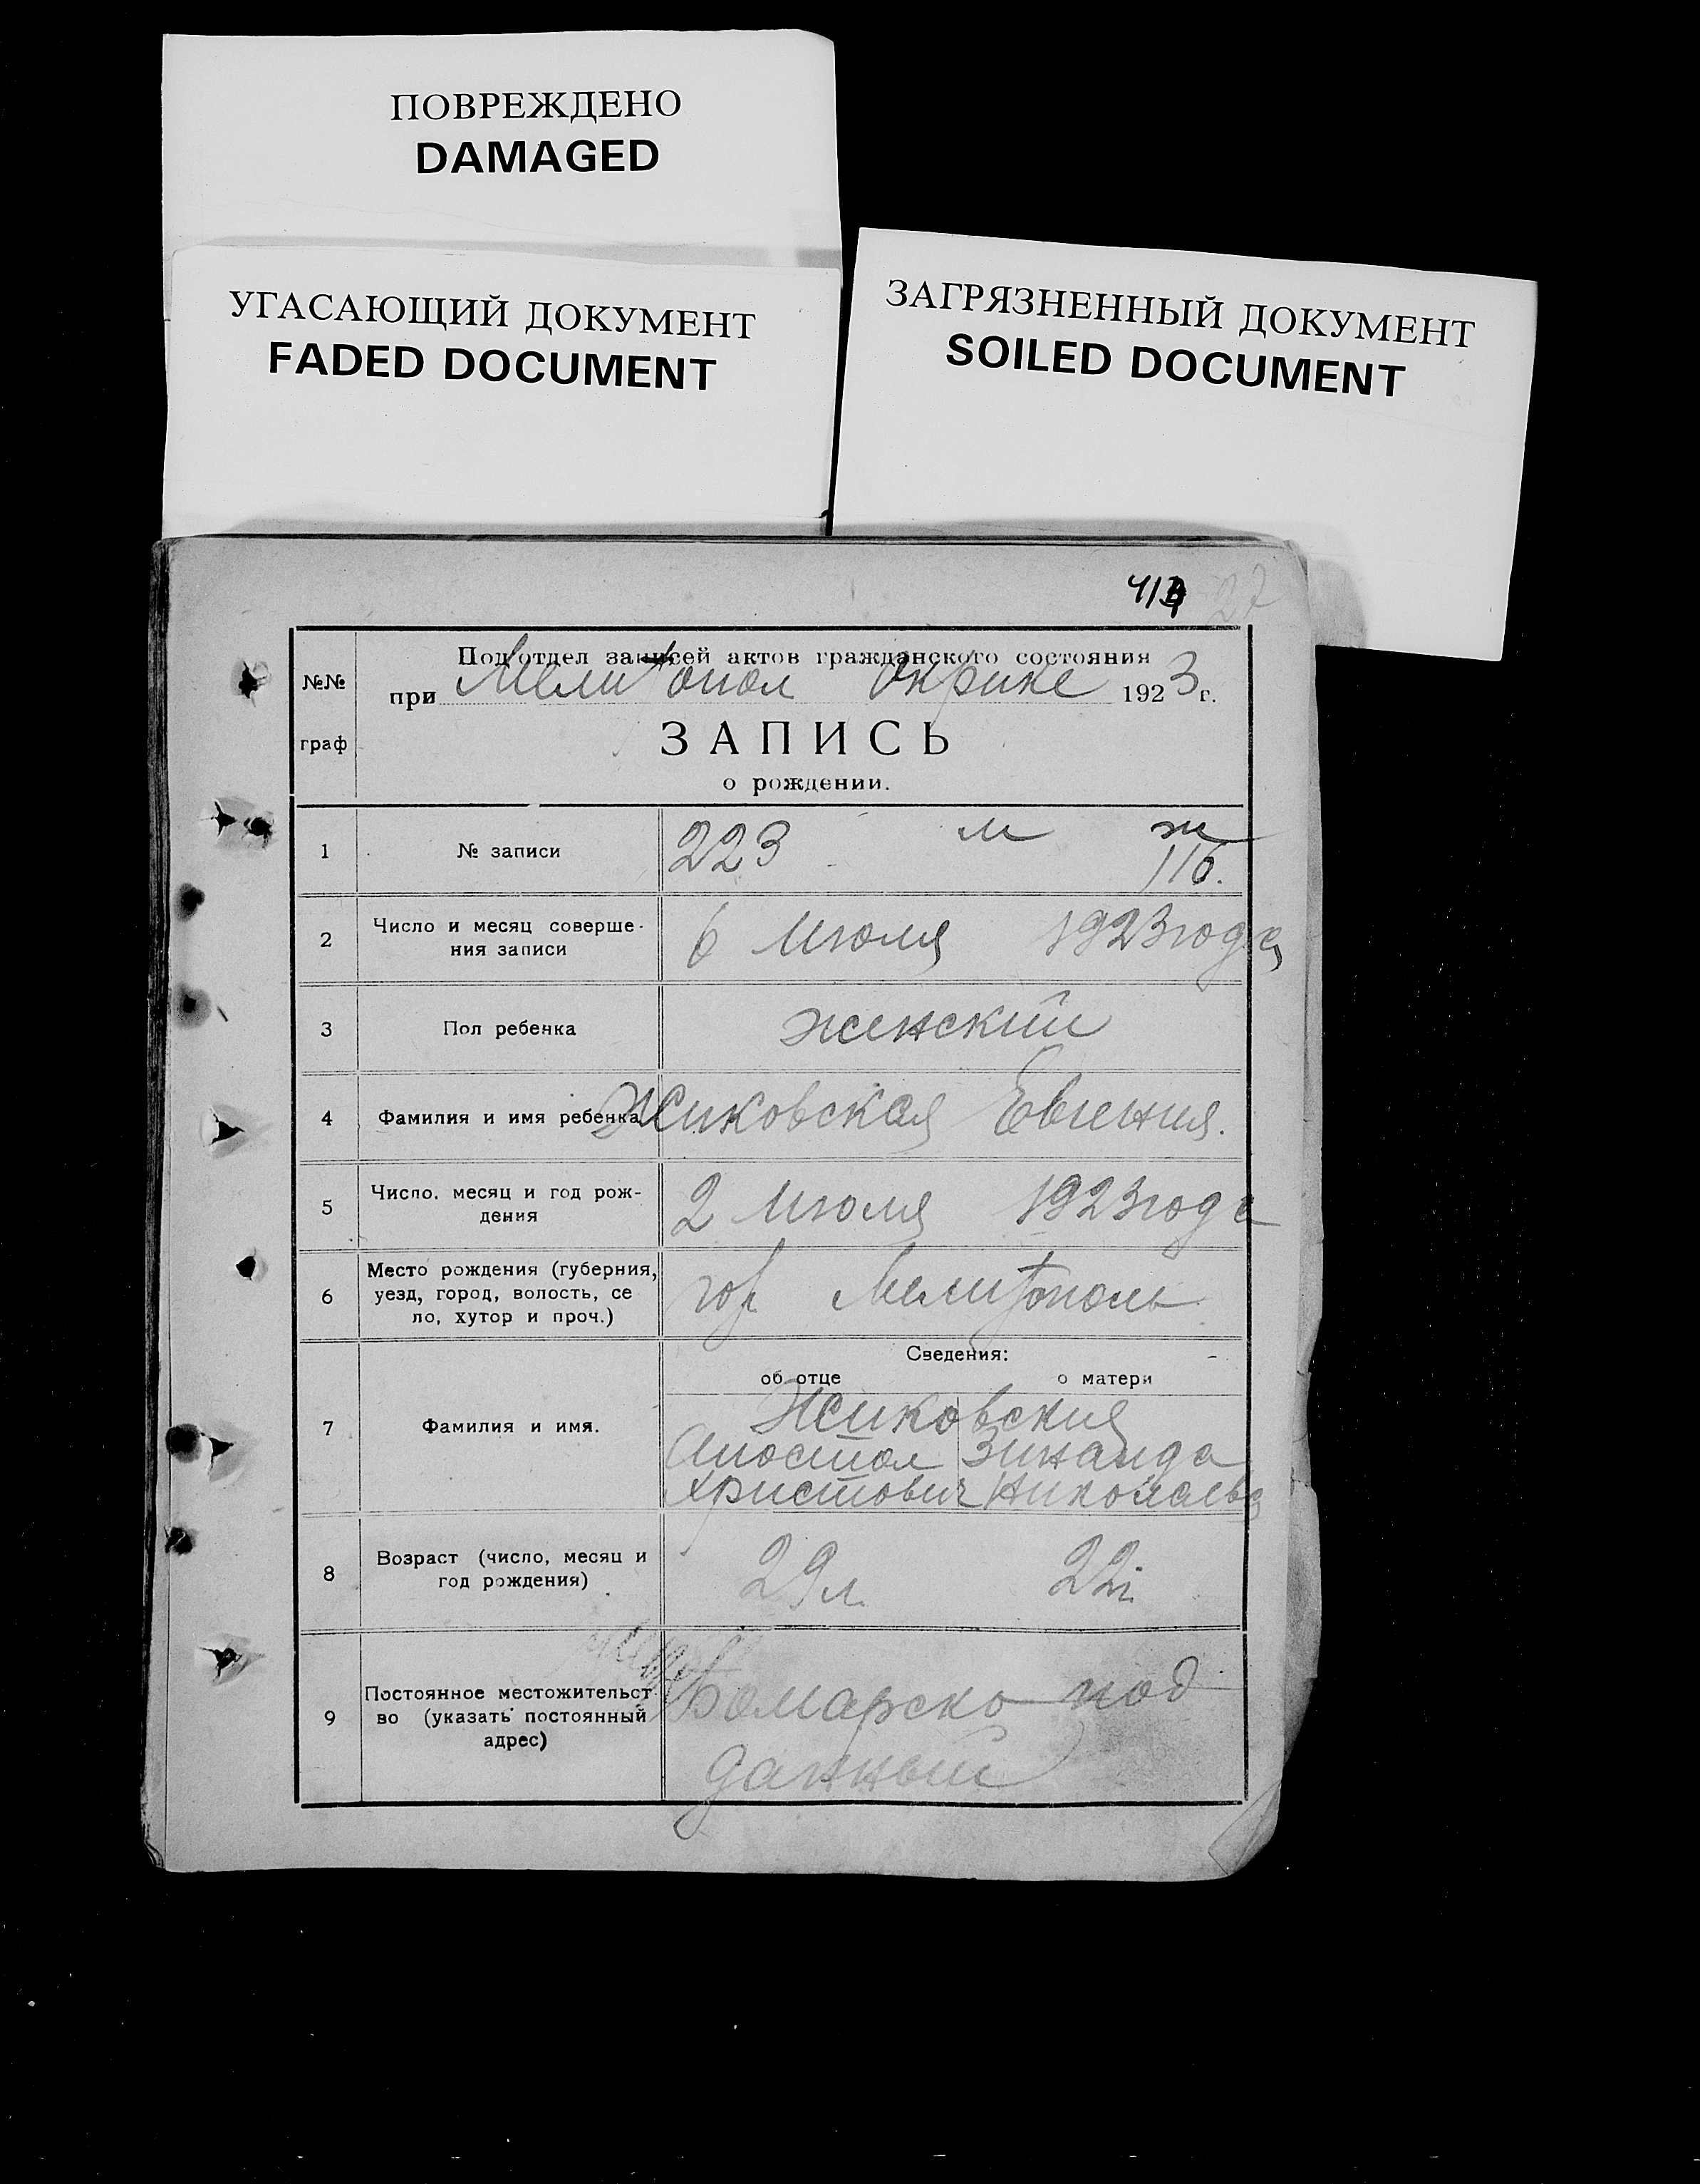 ПОВРЕЖДЕНО
DAMAGED
УГАСАЮЩИЙ ДОКУМЕНТ
FADED DOCUMENT
ЗАГРЯЗНЕННЫЙ ДОКУМЕНТ
SOILED DOCUMENT
27
№№ граф
Под'отдел записей актов гражданского состояния
при Мелитопол Окрике 1923 г.
ЗАПИСЬ
о рождении.
1 № записи 223 м ж
116.
2 Число и месяц соверше-
ния записи 6 Июля 1923 года
3 Пол ребенка женский
4 Фамилия и имя ребенка Жиковская Евгения.
5 Число, месяц и год рож-
дения 2 Июля 1923 года
6 Место рождения (губерния,
уезд, город, волость, се
ло, хутор и проч.) гор Мелитополь
Сведения:
об отце о матери
7 Фамилия и имя. Жиковские
Апостол Зинаида
Христович Николаева
8 Возраст (число, месяц и
год рождения) 29 л. 22
9 Постоянное местожительст-
во (указать постоянный
адрес) под
данный